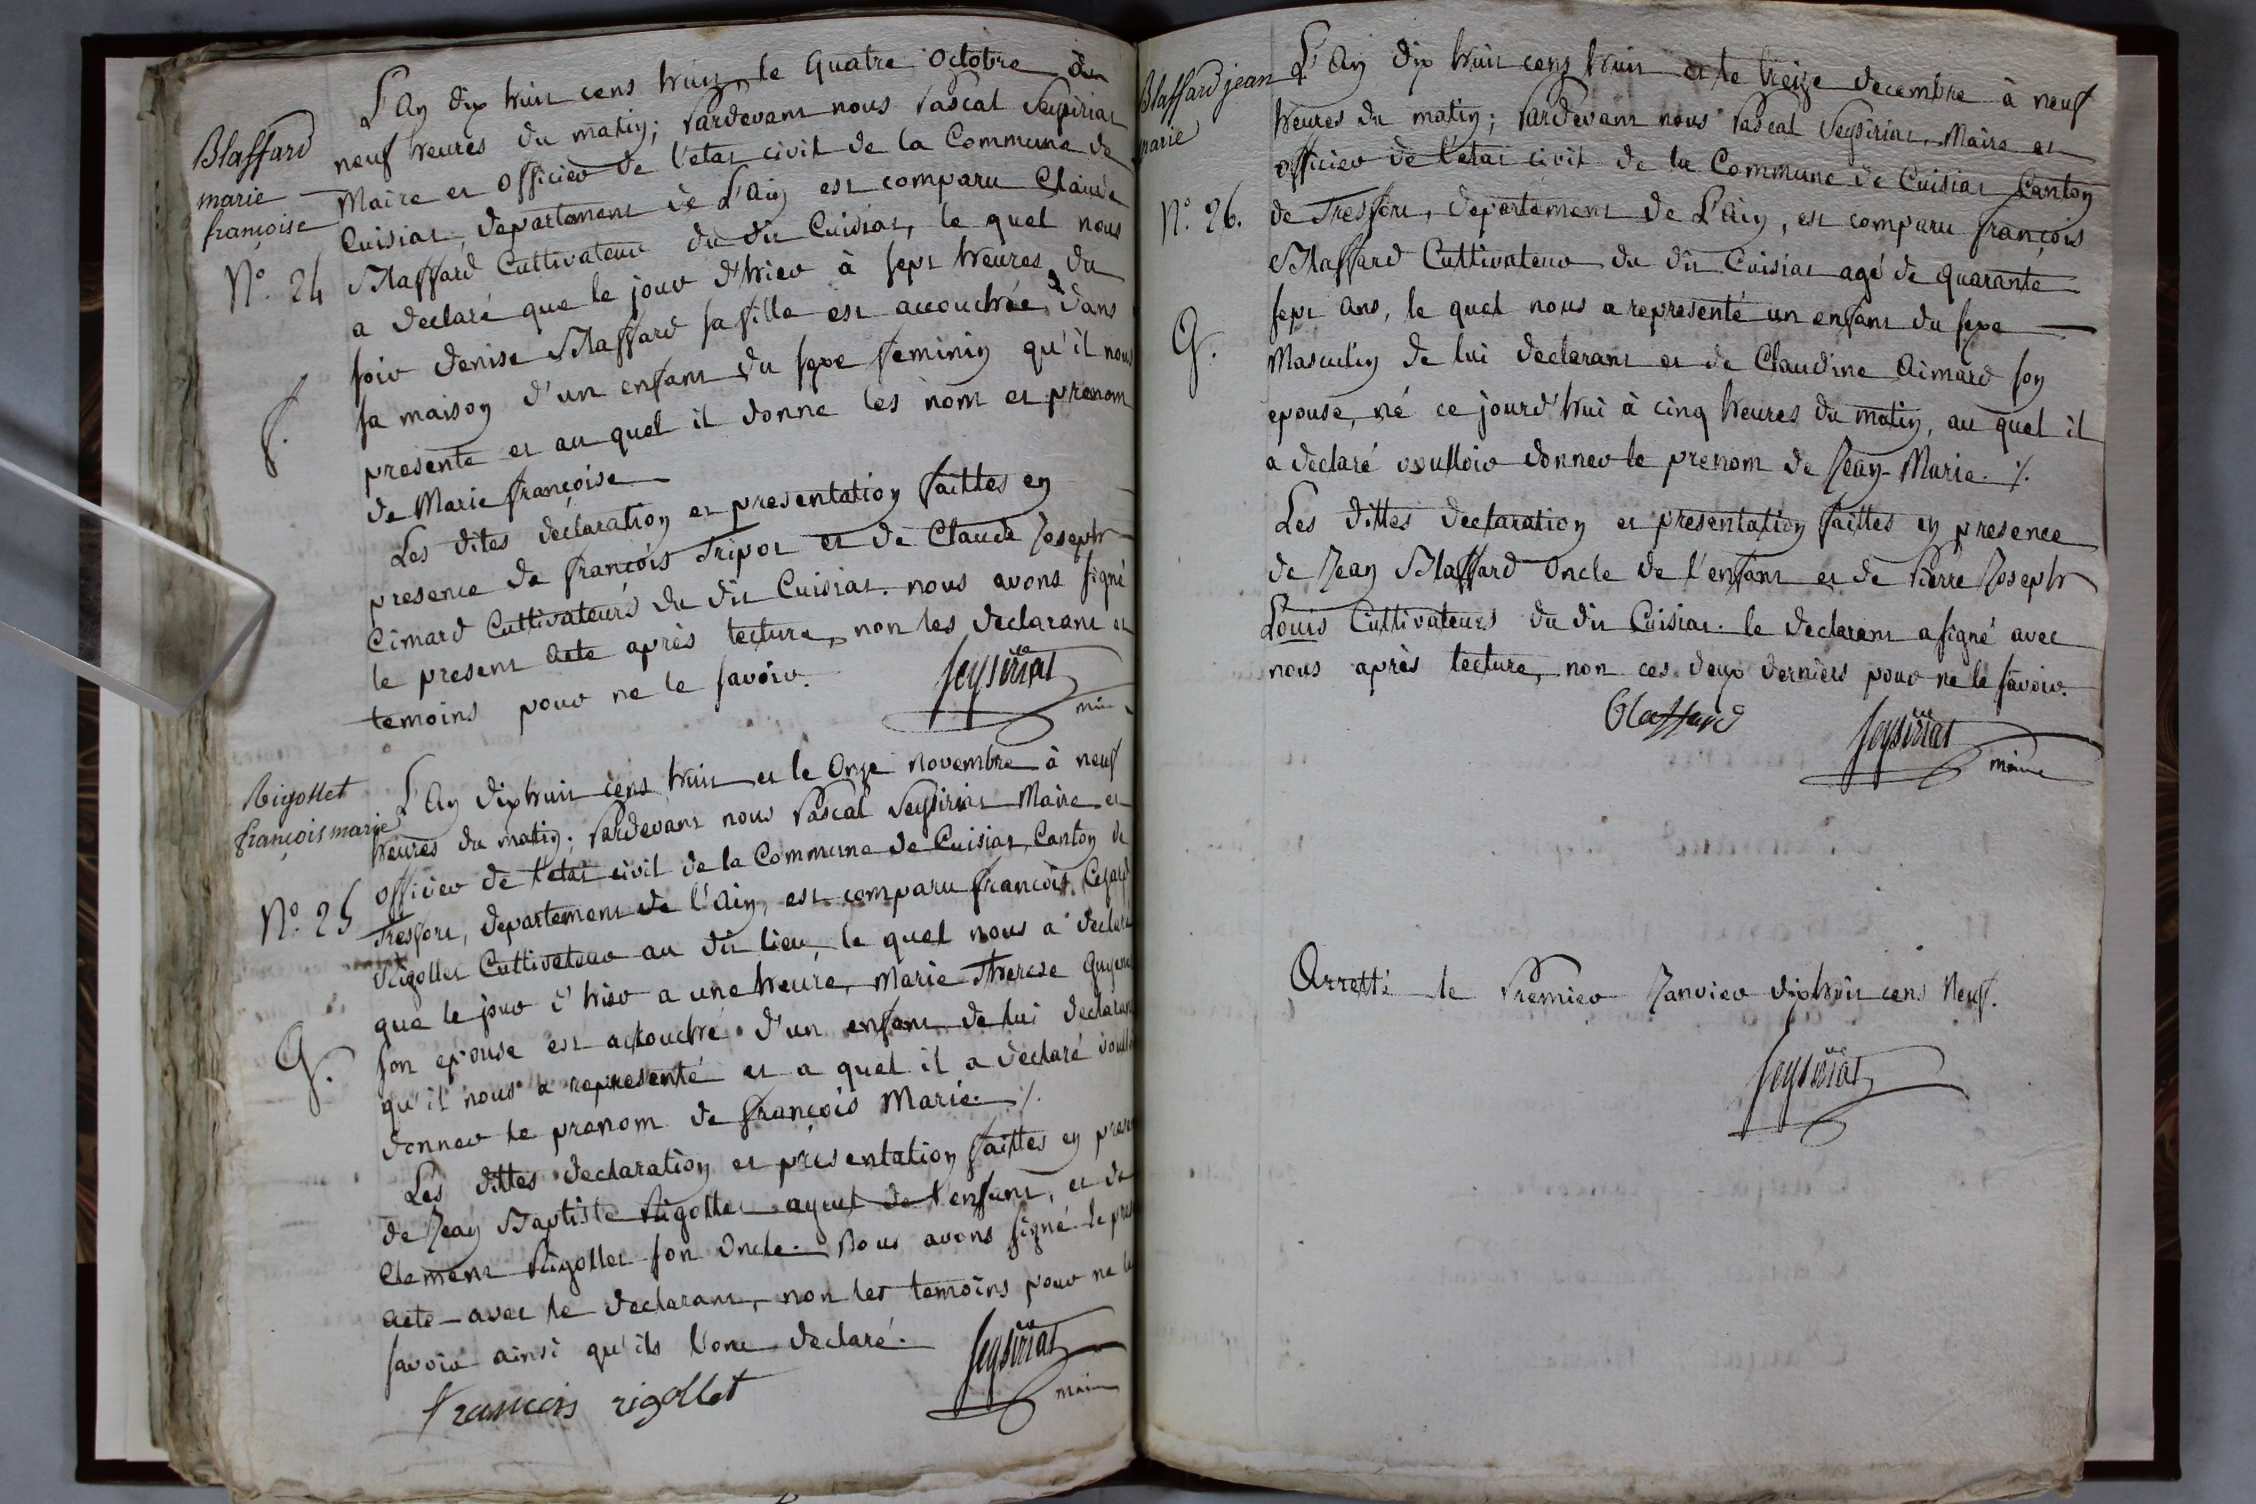 Blaffard
marie
françoise
N.º 24
f.
L'An dix huit cens huit, le quatre Octobre
neuf heures du matin; Pardevant nous Pascal Seysiriat
Maire et Officier de l'etat civil de la Commune de
Cuisiat, departement de L'Ain est comparu Claude
Blaffard Cultivateur du dit Cuisiat, le quel nous
a declaré que le jour d'hier à sept heures du
soir denise Blaffard sa fille est accouchée dans
sa maison d'un enfant du sexe feminin qu'il nous
presente et au quel il donne les nom et prenom
de Marie françoise
Les dites déclaration et presentation faittes en
presence de françois Tripot et de Claude Joseph
Cimard Cultivateurs du dit Cuisiat. nous avons signé
le present Acte après lecture, non les declarant et
temoins pour ne le savoir.
Seysiriat
maire
Rigollet
françois marie
N.º 25
G.
L'An dix huit cens huit et le Onze novembre à neuf
heures du matin; Pardevant nous Pascal Seysiriat Maire et
officier de l'etat civil de la Commune de Cuisiat, Canton de
Tresfort, departement de l'Ain, est comparu françois
Rigollet Cultivateur au dit lieu, le quel nous a declaré
que le jour d'hier a une heure, Marie Therese
son epouse est accouché d'un enfant de lui declarant
qu'il nous a representé et a quel il a declaré
donner le prenom de françois Marie. ⁒
Les dittes declaration et presentation faittes en
de Jean Baptiste Rigollet ayeul de l'enfant, et de
Clement Rigollet son Oncle. Nous avons signé le
acte avec le declarant, non les temoins pour ne le
savoir ainsi qu'ils l'ont declaré.
Seysiriat
maire
francois rigollet
Blaffard jean
marie
N.º 26.
G.
L'An dix huit cens huit et le treize decembre à neuf
heures du matin; Pardevant nous Pascal Seysiriat, Maire et
officier de l'etat civil de la Commune de Cuisiat Canton
de Tresfort, departement de L'Ain, est comparu françois
Blaffard Cultivateur du dit Cuisiat agé de quarante
sept ans, le quel nous a representé un enfant du sexe
Masculin de lui declarant et de Claudine Aimard son
epouse, né ce jourd'hui à cinq heures du matin, au quel il
a declaré voulloir donner le prenom de Jean-Marie. ⁒
Les dittes declaration et presentation faittes en presence
de Jean Blaffard Oncle de l'enfant et de Pierre Joseph
Louis Cultivateurs du dit Cuisiat. le declarant a signé avec
nous après lecture, non ces deux derniers pour ne le savoir.
Blaffard
Seysiriat
maire
Arretté le Premier Janvier dix huit cens Neuf.
Seysiriat